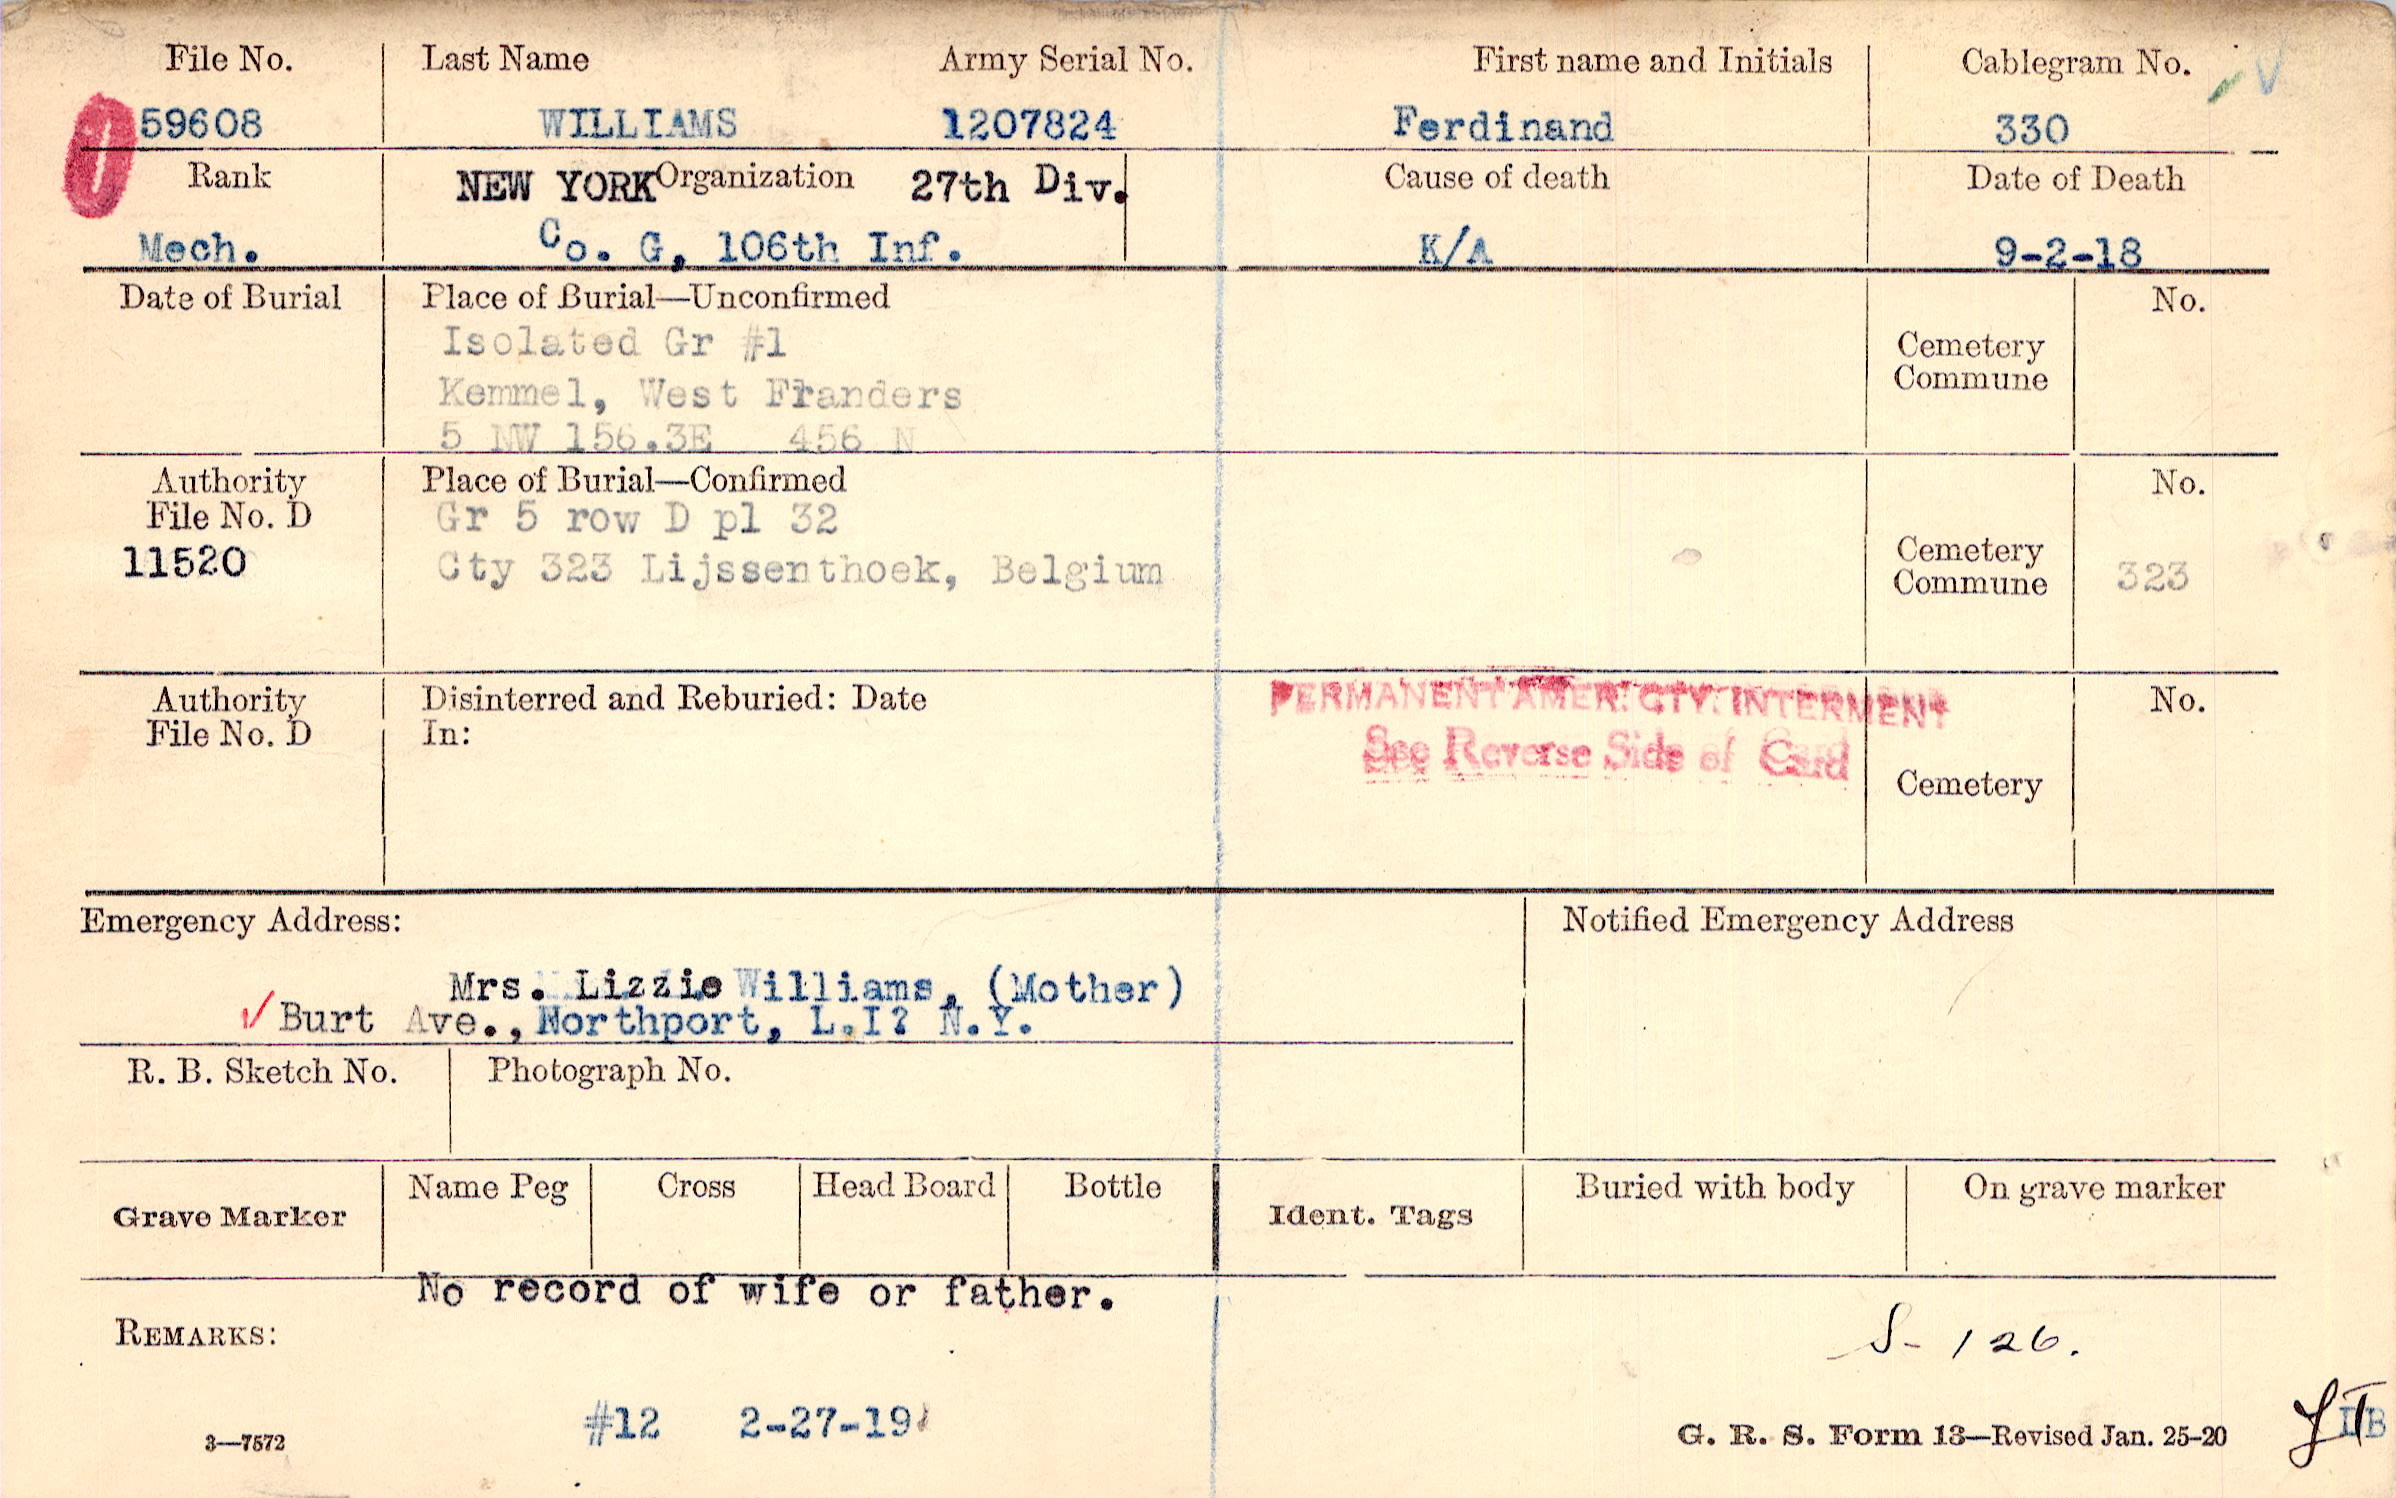 File No. Last Name Army Serial No. First name and Initials Cablegram No.
59608 WILLIAMS 1207824 Ferdinand 330
Rank NEW YORK Organization 27th Div. Cause of death Date of Death
Mech. Co. G, 106th Inf. K/A 9-2-18
Date of Burial Place of Burial—Unconfirmed No.
Isolated Gr #1 Cemetery
Kemmel, West Franders Commune
5 NW 156.3E 456 N
Authority Place of Burial—Confirmed No.
File No. D Gr 5 row D pl 32
11520 Cty 323 Lijssenthoek, Belgium Cemetery
Commune 323
Authority Disinterred and Reburied: Date PERMANENT AMER. CTY. INTERMENT No.
File No. D In: See Reverse Side of Card
Cemetery
Emergency Address: Notified Emergency Address
Mrs. Lizzie Williams, (Mother)
Burt Ave., Northport, L.I? N.Y.
R. B. Sketch No. Photograph No.
Grave Marker Name Peg Cross Head Board Bottle Ident. Tags Buried with body On grave marker
No record of wife or father.
REMARKS: S- 126.
#12 2-27-19
3—7572 G. R. S. Form 13—Revised Jan. 25-20